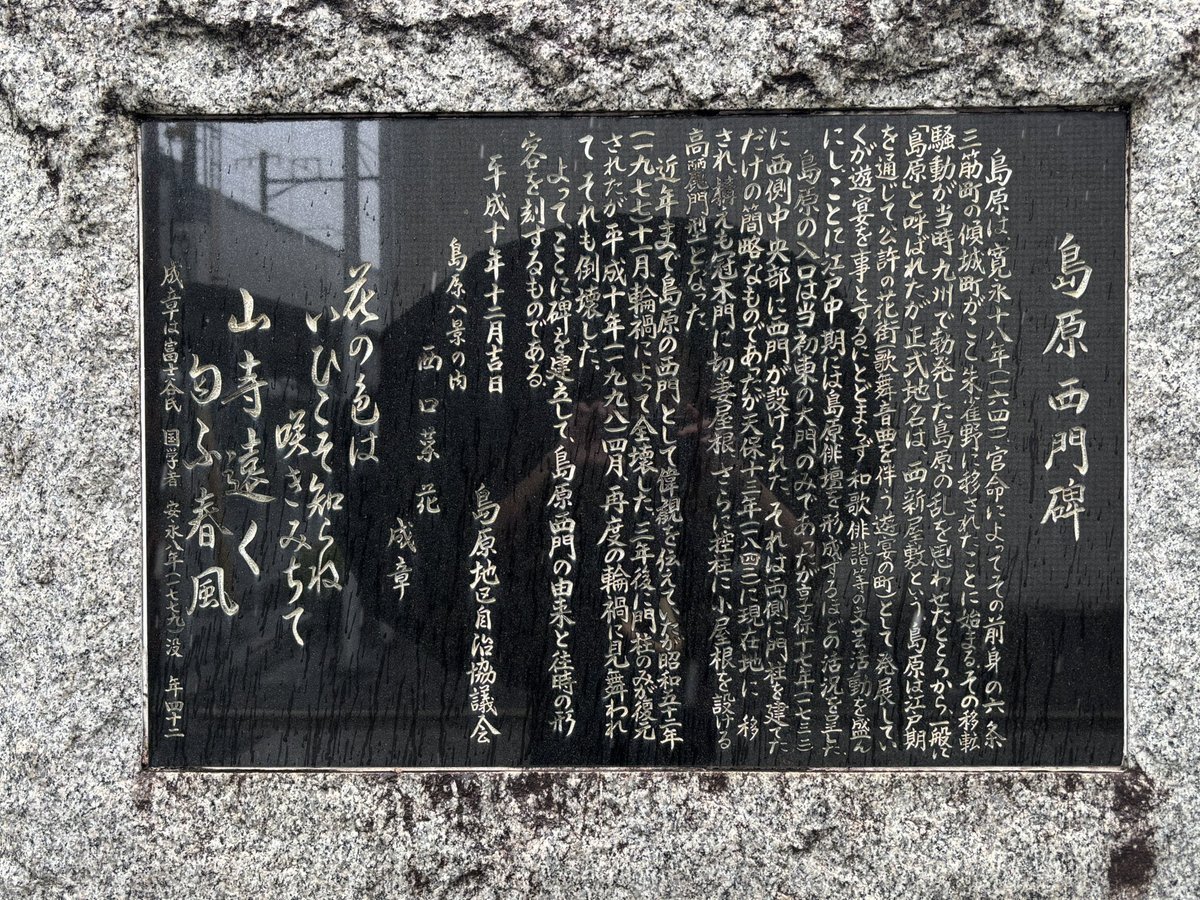 島原西門碑
島原は寛永十八年(一六四一)官命によってその前身の六条
三筋町の傾城町がここ朱雀野に移されたことに始まる。その移転
騒動が当時九州で勃発した島原の乱を思わせたところから、一般に
「島原」と呼ばれたが正式地名は、西新屋敷という。島原は江戸期
を通じて公許の花街(歌舞音曲を伴う遊宴の町)として発展してい
くが、遊宴を事とするにとどまらず、和歌俳諧等の文芸活動も盛ん
にしことに江戸中期には島原俳壇を形成するほどの活況を呈した
島原の入口は当初東の大門のみであったが享保十七年(一七三二)
に西側中央部に西門が設けられた。それは両側に門柱を建てた
だけの簡略なものであったが天保十三年(一八四二)に現在地に移
され、構えも冠木門に切妻屋根、さらに控柱に小屋根を設ける
高麗門型となった。
近年まで島原の西門として偉観を伝えていたが昭和五十二年
(一九七七)十一月輪禍によって全壊した。三年後に門柱のみが復元
されたが平成十年(一九九八)四月、再度の輪禍に見舞われ
て、それも倒壊した。
よって、ここに碑を建立して、島原西門の由来と往時の形
容を刻するものである。
平成十年十二月吉日
島原地区自治協議会
島原八景の内
西口菜花
成章
花の色は
いひこそ知らね
咲きみちて
山寺遠く
匂ふ春風
成章は富士谷氏 国学者 安永八年(一七七九)没 年四十二